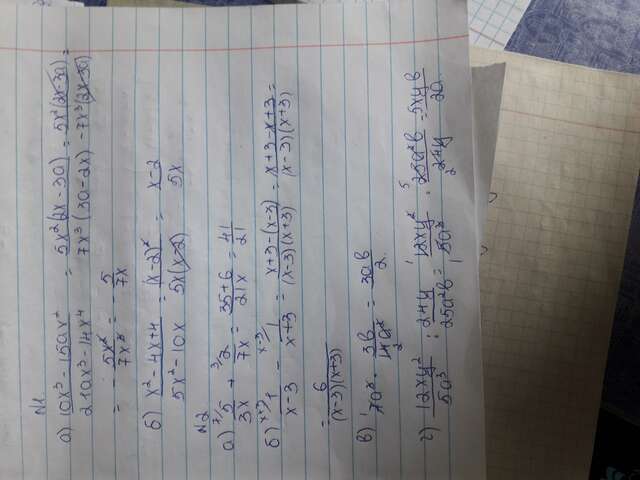 N1
а) 10x³-15ax² / 21ax³-14x⁴ = 5x²(2x-3a) / 7x³(3a-2x) = 5x²(2x-3a) / -7x³(2x-3a) =
= - 5x² / 7x³ = - 5 / 7x
б) x²-4x+4 / 5x²-10x = (x-2)² / 5x(x-2) = x-2 / 5x
N2
а) 7/ 5 / 3x + 3/ 2 / 7x = 35+6 / 21x = 41 / 21
б) x+3/ 1 / x-3 - x-3/ 1 / x+3 = x+3-(x-3) / (x-3)(x+3) = x+3-x+3 / (x-3)(x+3) =
= 6 / (x-3)(x+3)
в) 7a² · 3b / 14a = 3ab / 2
г) 12xy² / 5a³ : 24y / 25a²b = 12xy² / 5a³ · 25a²b / 24y = 5xyb / 2a